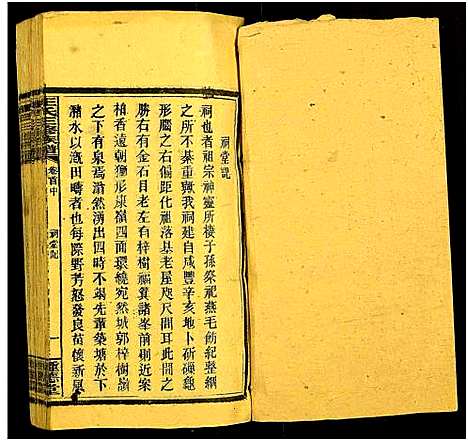 祠堂記
祠也者祖宗神靈所棲子孫祭祀燕毛飭紀整綱
之所不綦重哉我祠建自咸豐辛亥地卜研硨龜
形腦之右偏距化祖落基老屋咫尺間耳此開之
勝右有金石目老左有梓樹福質諸峯前則近案
柏香遠朝獅形康嶺四面環繞宛然城郭梓樹嶺
之下有泉焉滃然湧出四時不竭先輩築塘於下
瀦水以漑田疇者也每際野芳怒發良苗懷新風
卷首中
祠堂記